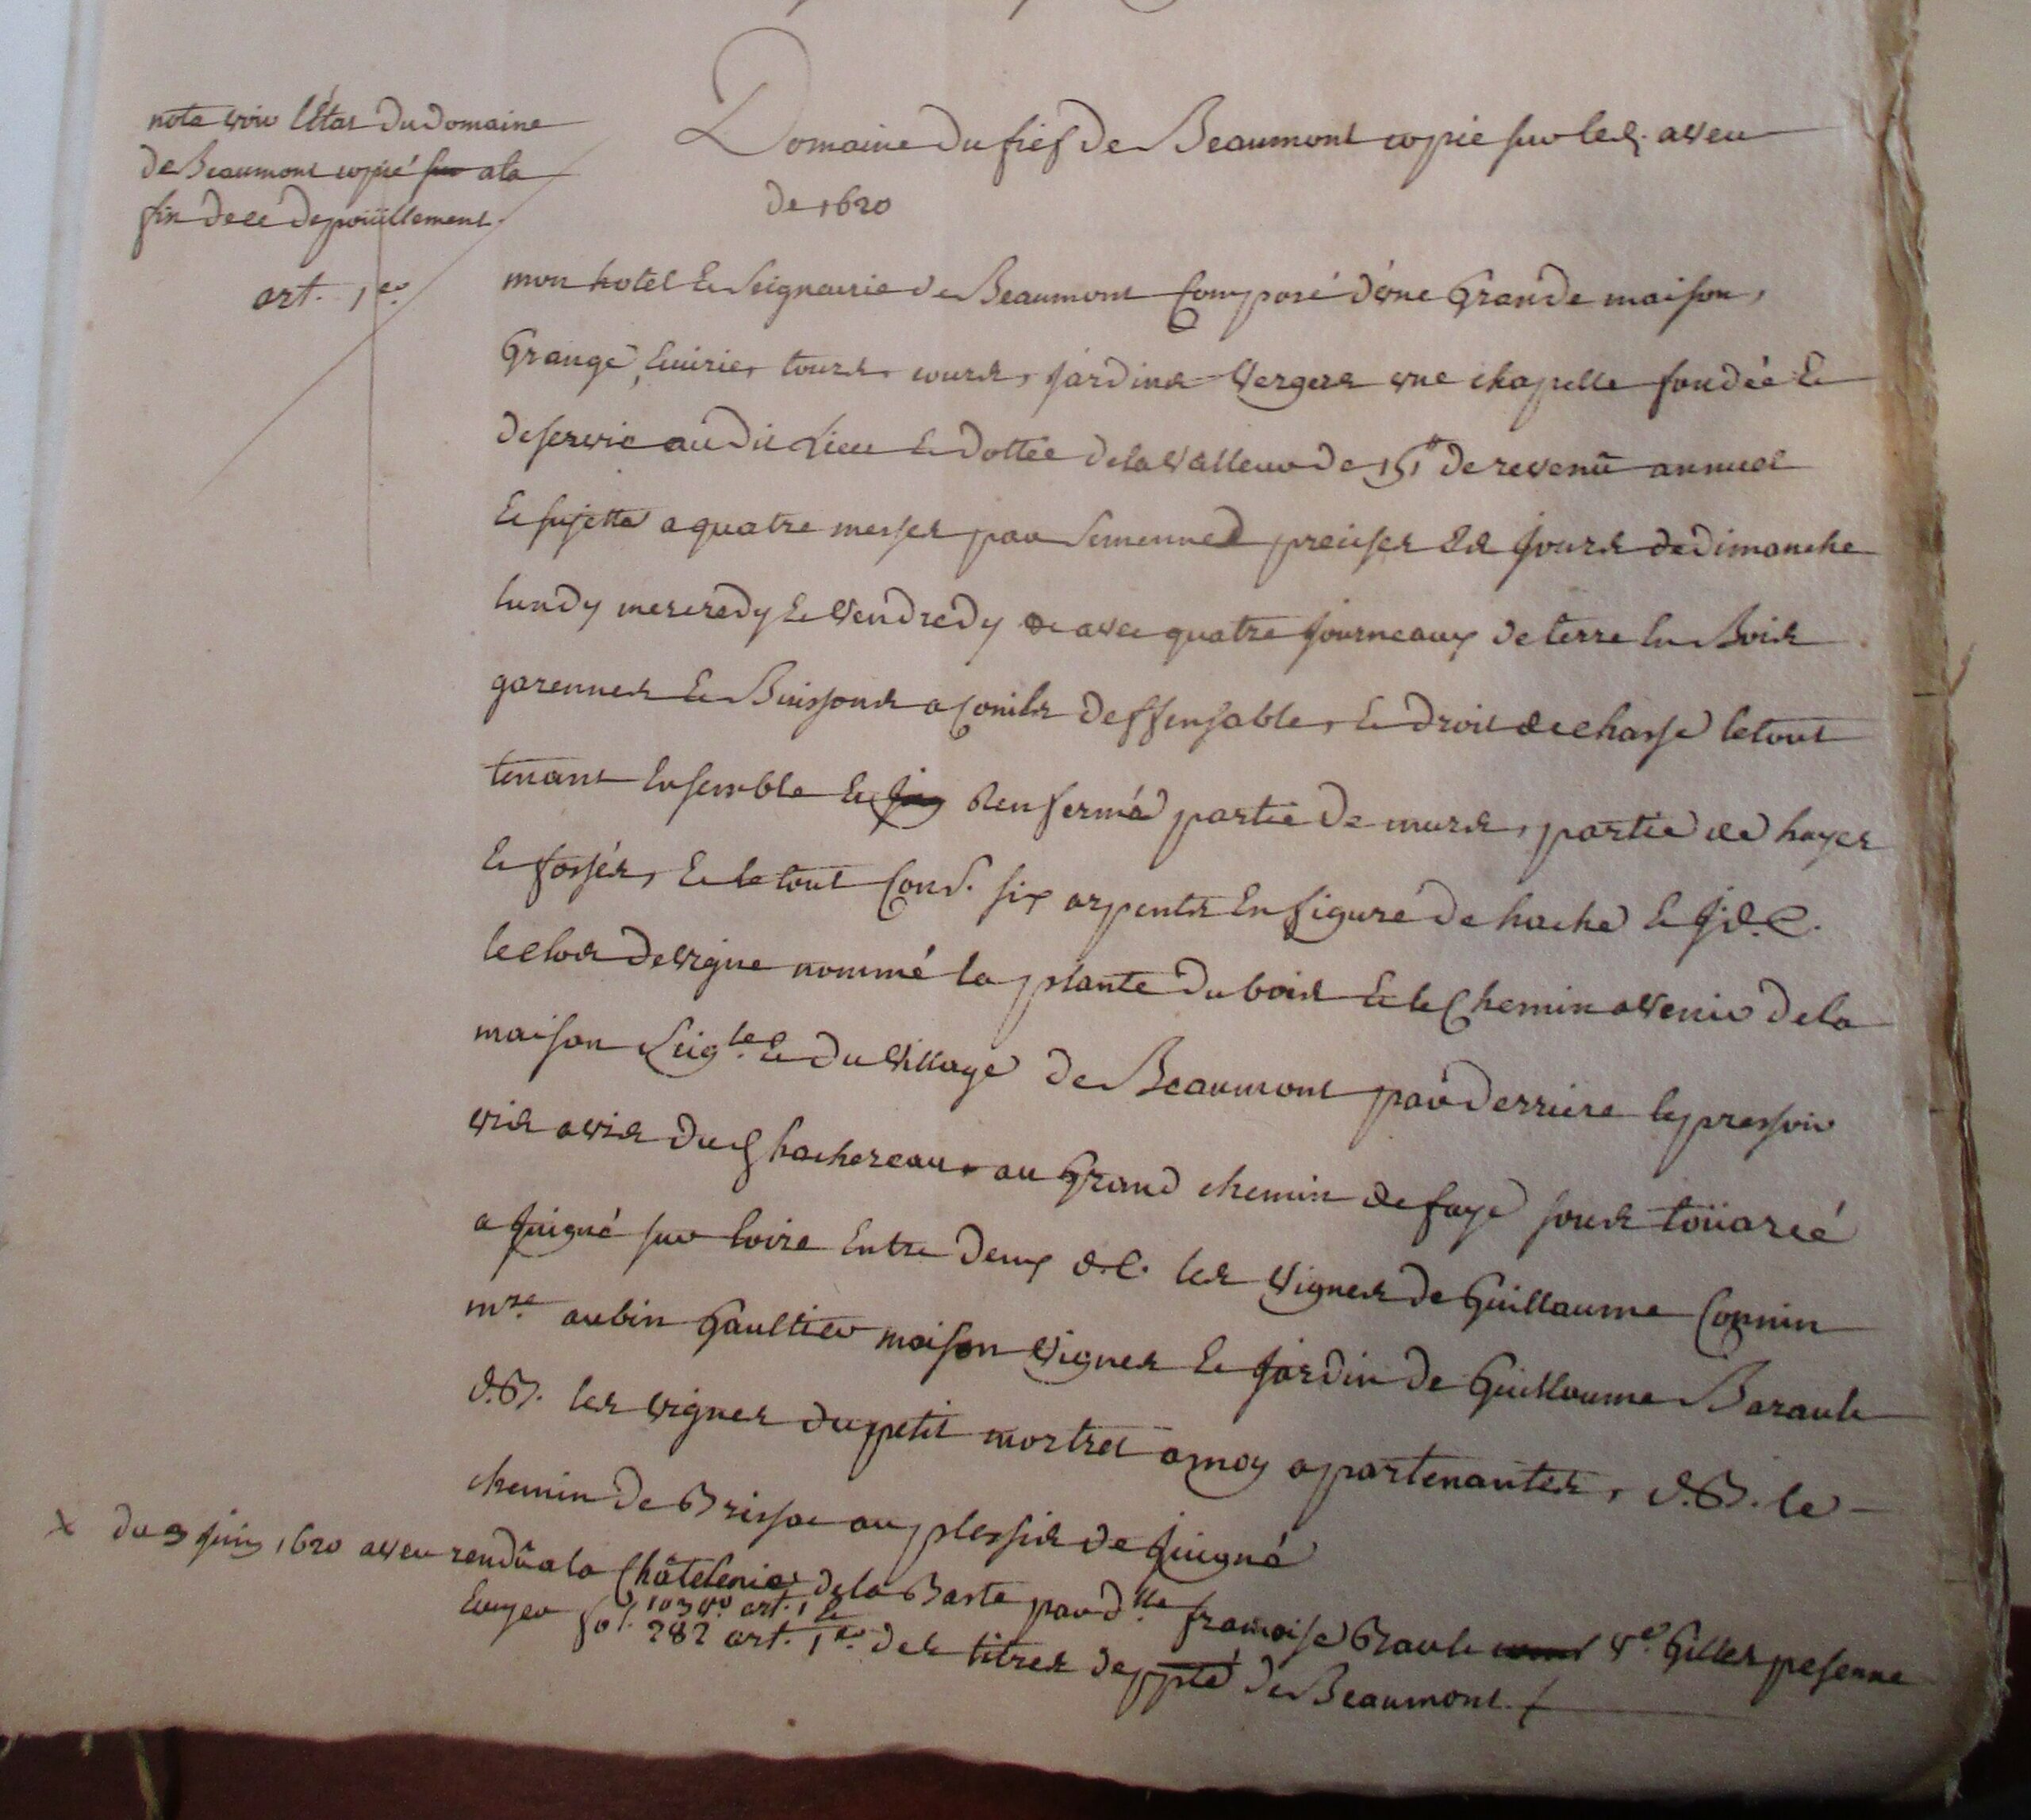 note voir l'état du domaine
de Beaumont copié sur a la
fin de ce depoüillement.
Domaine du fief de Beaumont copie sur led. aveu
de 1620
art. 1er.
mon hotel et Seigneurie de Beaumont Composé d'une Grande maison,
Grange, Ecuries, tours, cours, jardins Vergers une chapelle fondée et
deservie audit Lieu et dottée de la valleur de de revenu annuel
et sujette a quatre messes par semenne precises es jours de dimanche
lundy mercredy et Vendredy avec quatre journeaux de terre en Bois
garennes et Buissons a Conils deffensables, et droit de chasse le tout
tenant Ensemble et renfermé partie de murs, partie de hayes
et fossés, et le tout Cont. six arpents En figure de hache et J.d.C.
le clos de vigne nommé la plante du bois et le Chemin a Venir de la
maison Seigle. et du Village de Beaumont par derriere le pressoir
vis a vis du Chachereau au Grand chemin de faye sous toüarcé
a Juigné sur loire Entre deux d.C. les Vignes de Guillaume Connin
mre. aubin Gaultier maison Vignes et Jardin de Guillaume Barault
d.B. les vignes du petit mortret a moy apartenantes, d.B. le
chemin de Brissac au plessis de Juigné
x du 9 juin 1620 aveu rendu a la Châtelenie de la Baste par dlle. francoise Brault ve. Gilles pesenne
Ecuyer fol. 103 vo. art. 1 et
282 art. 1er. des titres de ppté de Beaumont